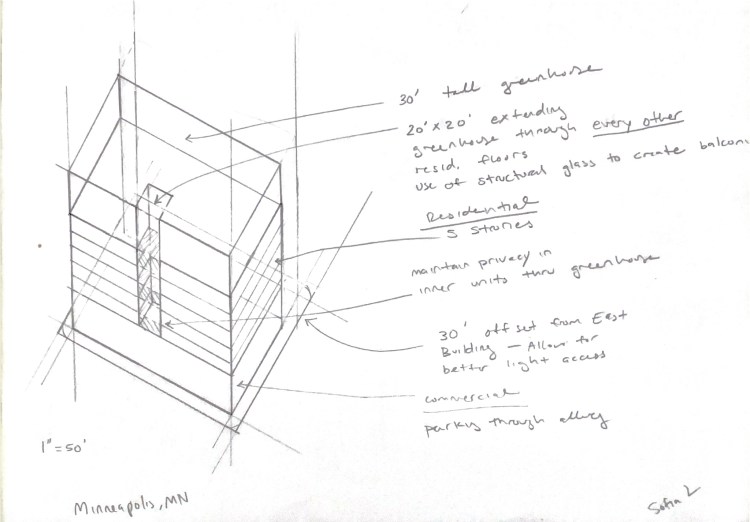 30' tall greenhouse
20' x 20' extending
greenhouse through every other
resid. floors
use of structural glass to create balconi
Residential
5 stories
maintain privacy in
inner units thru greenhouse
30' offset from East
Building — Allow for
better light access
commercial
parking through alley
1" = 50'
Minneapolis, MN
Sofia